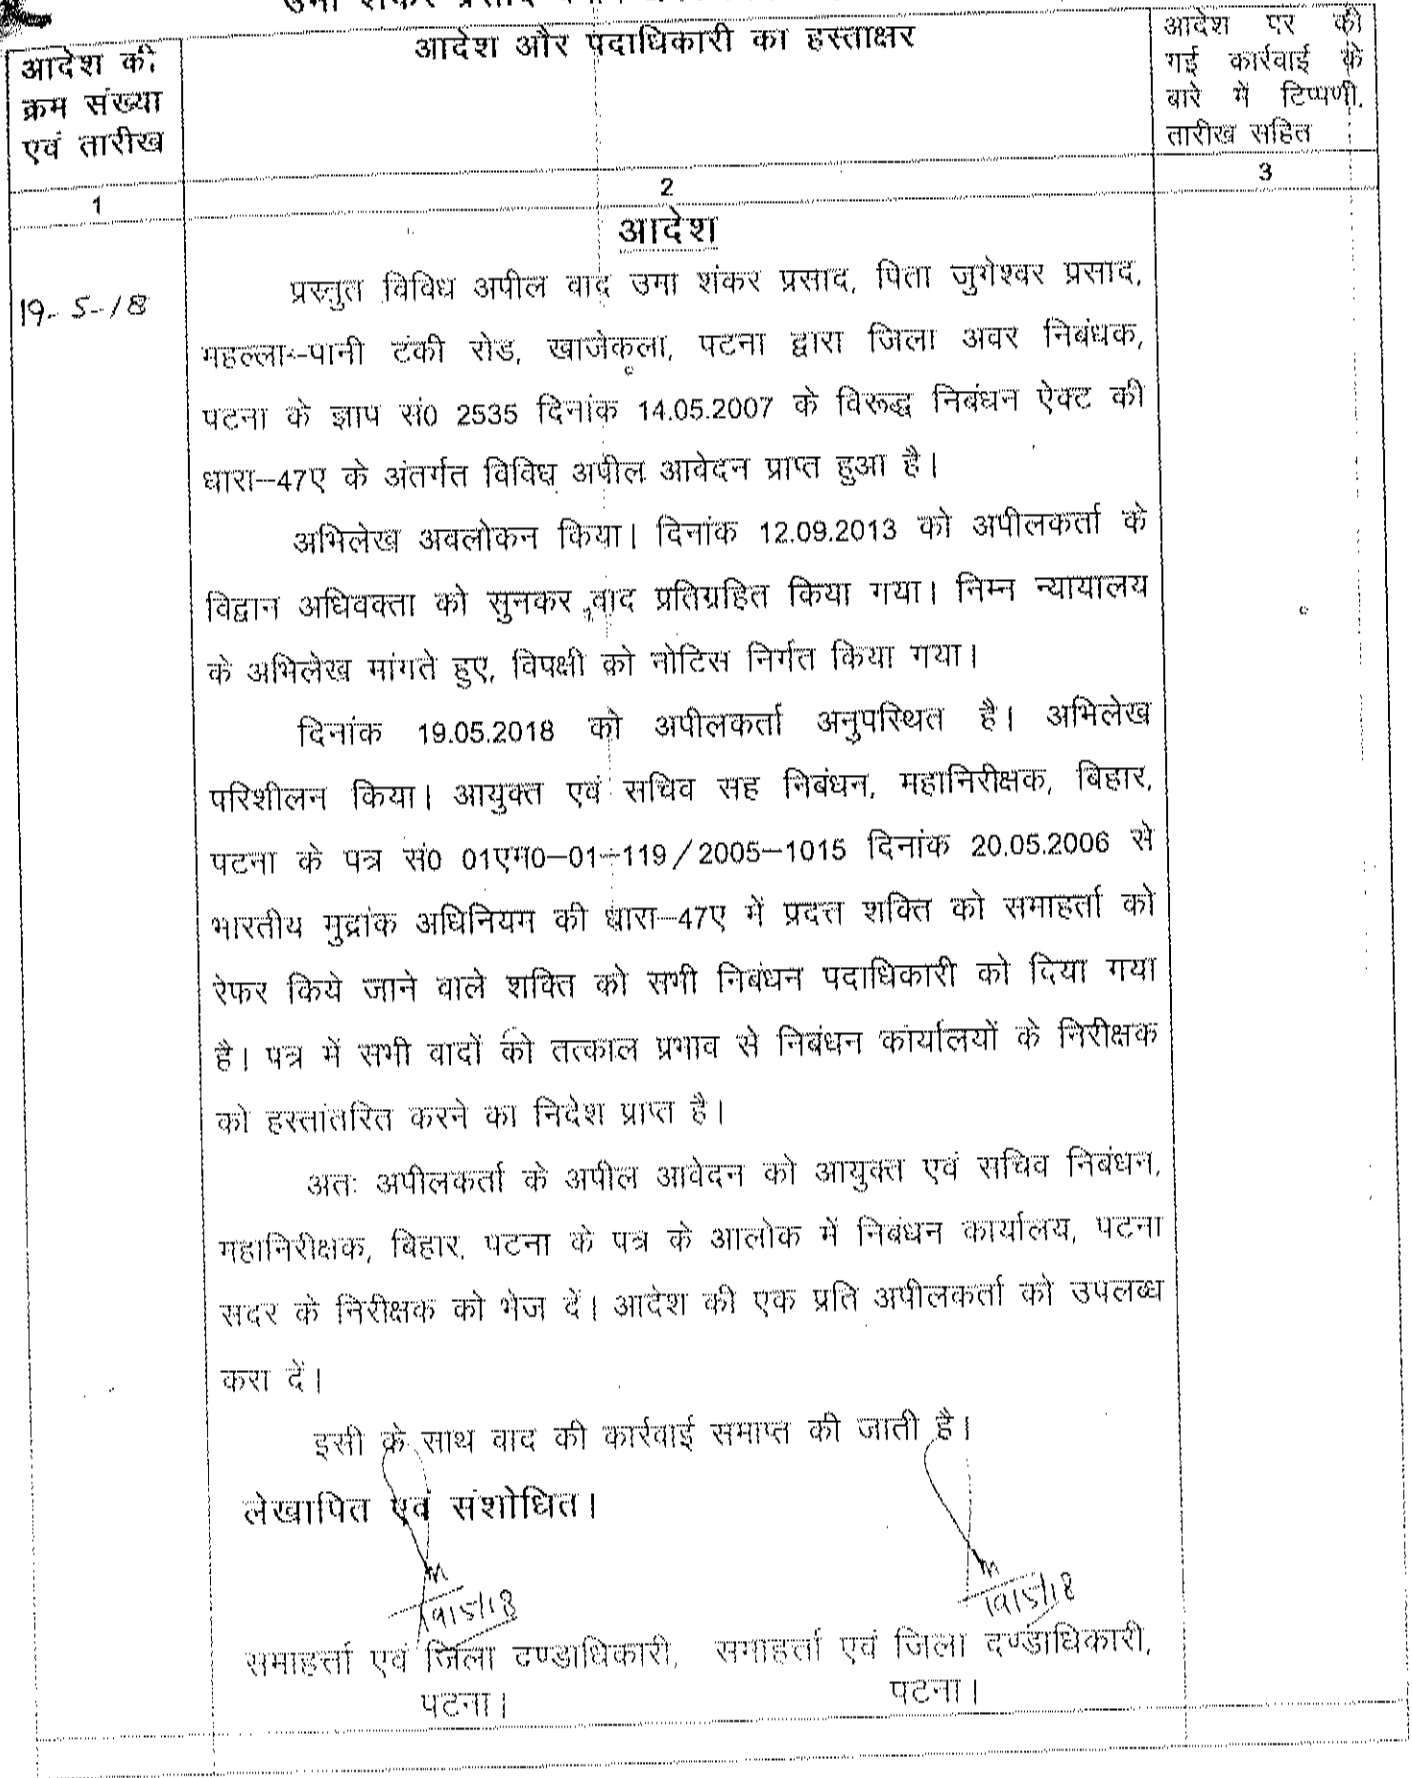 उमा शंकर प्रसाद
आदेश की क्रम संख्या एवं तारीख
आदेश और पदाधिकारी का हस्ताक्षर
आदेश पर की गई कार्रवाई के बारे में टिप्पणी, तारीख सहित
1
2
3
आदेश
19-5-18
प्रस्तुत विविध अपील वाद उमा शंकर प्रसाद, पिता जुगेश्वर प्रसाद,
महल्ला-पानी टंकी रोड, खाजेकला, पटना द्वारा जिला अवर निबंधक,
पटना के ज्ञाप सं0 2535 दिनांक 14.05.2007 के विरूद्ध निबंधन ऐक्ट की
धारा-47ए के अंतर्गत विविध अपील आवेदन प्राप्त हुआ है।
अभिलेख अवलोकन किया। दिनांक 12.09.2013 को अपीलकर्ता के
विद्वान अधिवक्ता को सुनकर वाद प्रतिग्रहित किया गया। निम्न न्यायालय
के अभिलेख मांगते हुए, विपक्षी को नोटिस निर्गत किया गया।
दिनांक 19.05.2018 को अपीलकर्ता अनुपस्थित है। अभिलेख
परिशीलन किया। आयुक्त एवं सचिव सह निबंधन, महानिरीक्षक, बिहार,
पटना के पत्र सं0 01एम0-01-119/2005-1015 दिनांक 20.05.2006 से
भारतीय मुद्रांक अधिनियम की धारा-47ए में प्रदत्त शक्ति को समाहर्ता को
रेफर किये जाने वाले शक्ति को सभी निबंधन पदाधिकारी को दिया गया
है। पत्र में सभी वादों को तत्काल प्रभाव से निबंधन कार्यालयों के निरीक्षक
को हस्तांतरित करने का निदेश प्राप्त है।
अतः अपीलकर्ता के अपील आवेदन को आयुक्त एवं सचिव निबंधन,
महानिरीक्षक, बिहार, पटना के पत्र के आलोक में निबंधन कार्यालय, पटना
सदर के निरीक्षक को भेज दें। आदेश की एक प्रति अपीलकर्ता को उपलब्ध
करा दें।
इसी के साथ वाद की कार्रवाई समाप्त की जाती है।
लेखापित एवं संशोधित।
19/5/18
19/5/18
समाहर्त्ता एवं जिला दण्डाधिकारी, समाहर्त्ता एवं जिला दण्डाधिकारी,
पटना। पटना।